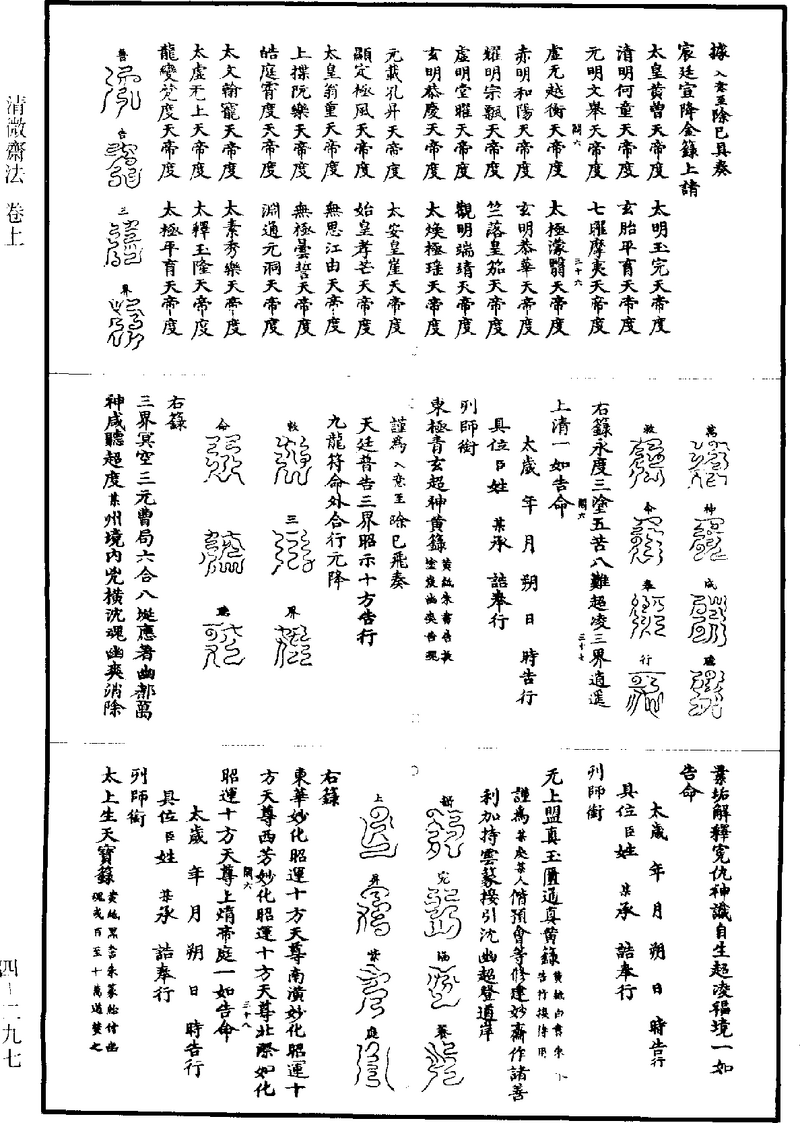 清微齋法 卷上
四—二九七
據 入意至除已具奏
宸廷宣降金籙上請
太皇黃曾天帝度 太明玉完天帝度
清明何童天帝度 玄胎平育天帝度
元明文舉天帝度 七曜摩夷天帝度
闕六 三十六
虛无越衡天帝度 太極濛翳天帝度
赤明和陽天帝度 玄明恭華天帝度
耀明宗飄天帝度 竺落皇笳天帝度
虛明堂曜天帝度 觀明端靖天帝度
玄明恭慶天帝度 太煥極瑤天帝度
元載孔昇天帝度 太安皇崖天帝度
顯定極風天帝度 始皇孝芒天帝度
太皇翁重天帝度 無思江由天帝度
上揲阮樂天帝度 無極曇誓天帝度
皓庭霄度天帝度 淵通元洞天帝度
太文翰寵天帝度 太素秀樂天帝度
太虛无上天帝度 太釋玉隆天帝度
龍變梵度天帝度 太極平育天帝度
普 告 三 界
萬 神 咸 聽
救 命 奉 行
右籙永度三塗五苦八難超凌三界逍遥
闕六 三十七
上清一如告命
太歲 年 月 朔 日 時告行
具位臣姓 某承 誥奉行
列師銜
東極青玄超神黃籙
謹為 入意至 除已飛奏
天廷普告三界昭示十方告行
九龍符命外合行元降
敕 三 界
命 聽
右籙
三界冥空三元曹局六合八埏應者幽都萬
神咸聽超度某州境內兇橫沈魂幽爽消除
業垢解釋冤仇神識自生超凌福境一如
告命
太歲 年 月 朔 日 時告行
具位臣姓 某承 誥奉行
列師銜
元上盟真玉匱通真黃籙
謹為某處某人偕預會等修建妙齋作諸善
利加持雲篆接引沈幽超登道岸
上 昇 紫 庭
右籙
東華妙化昭運十方天尊南潢妙化昭運十
方天尊西芳妙化昭運十方天尊北際妙化
闕六 三十八
昭運十方天尊上熕帝庭一如告命
太歲 年 月 朔 日 時告行
具位臣姓 某承 誥奉行
列師銜
太上生天寶籙